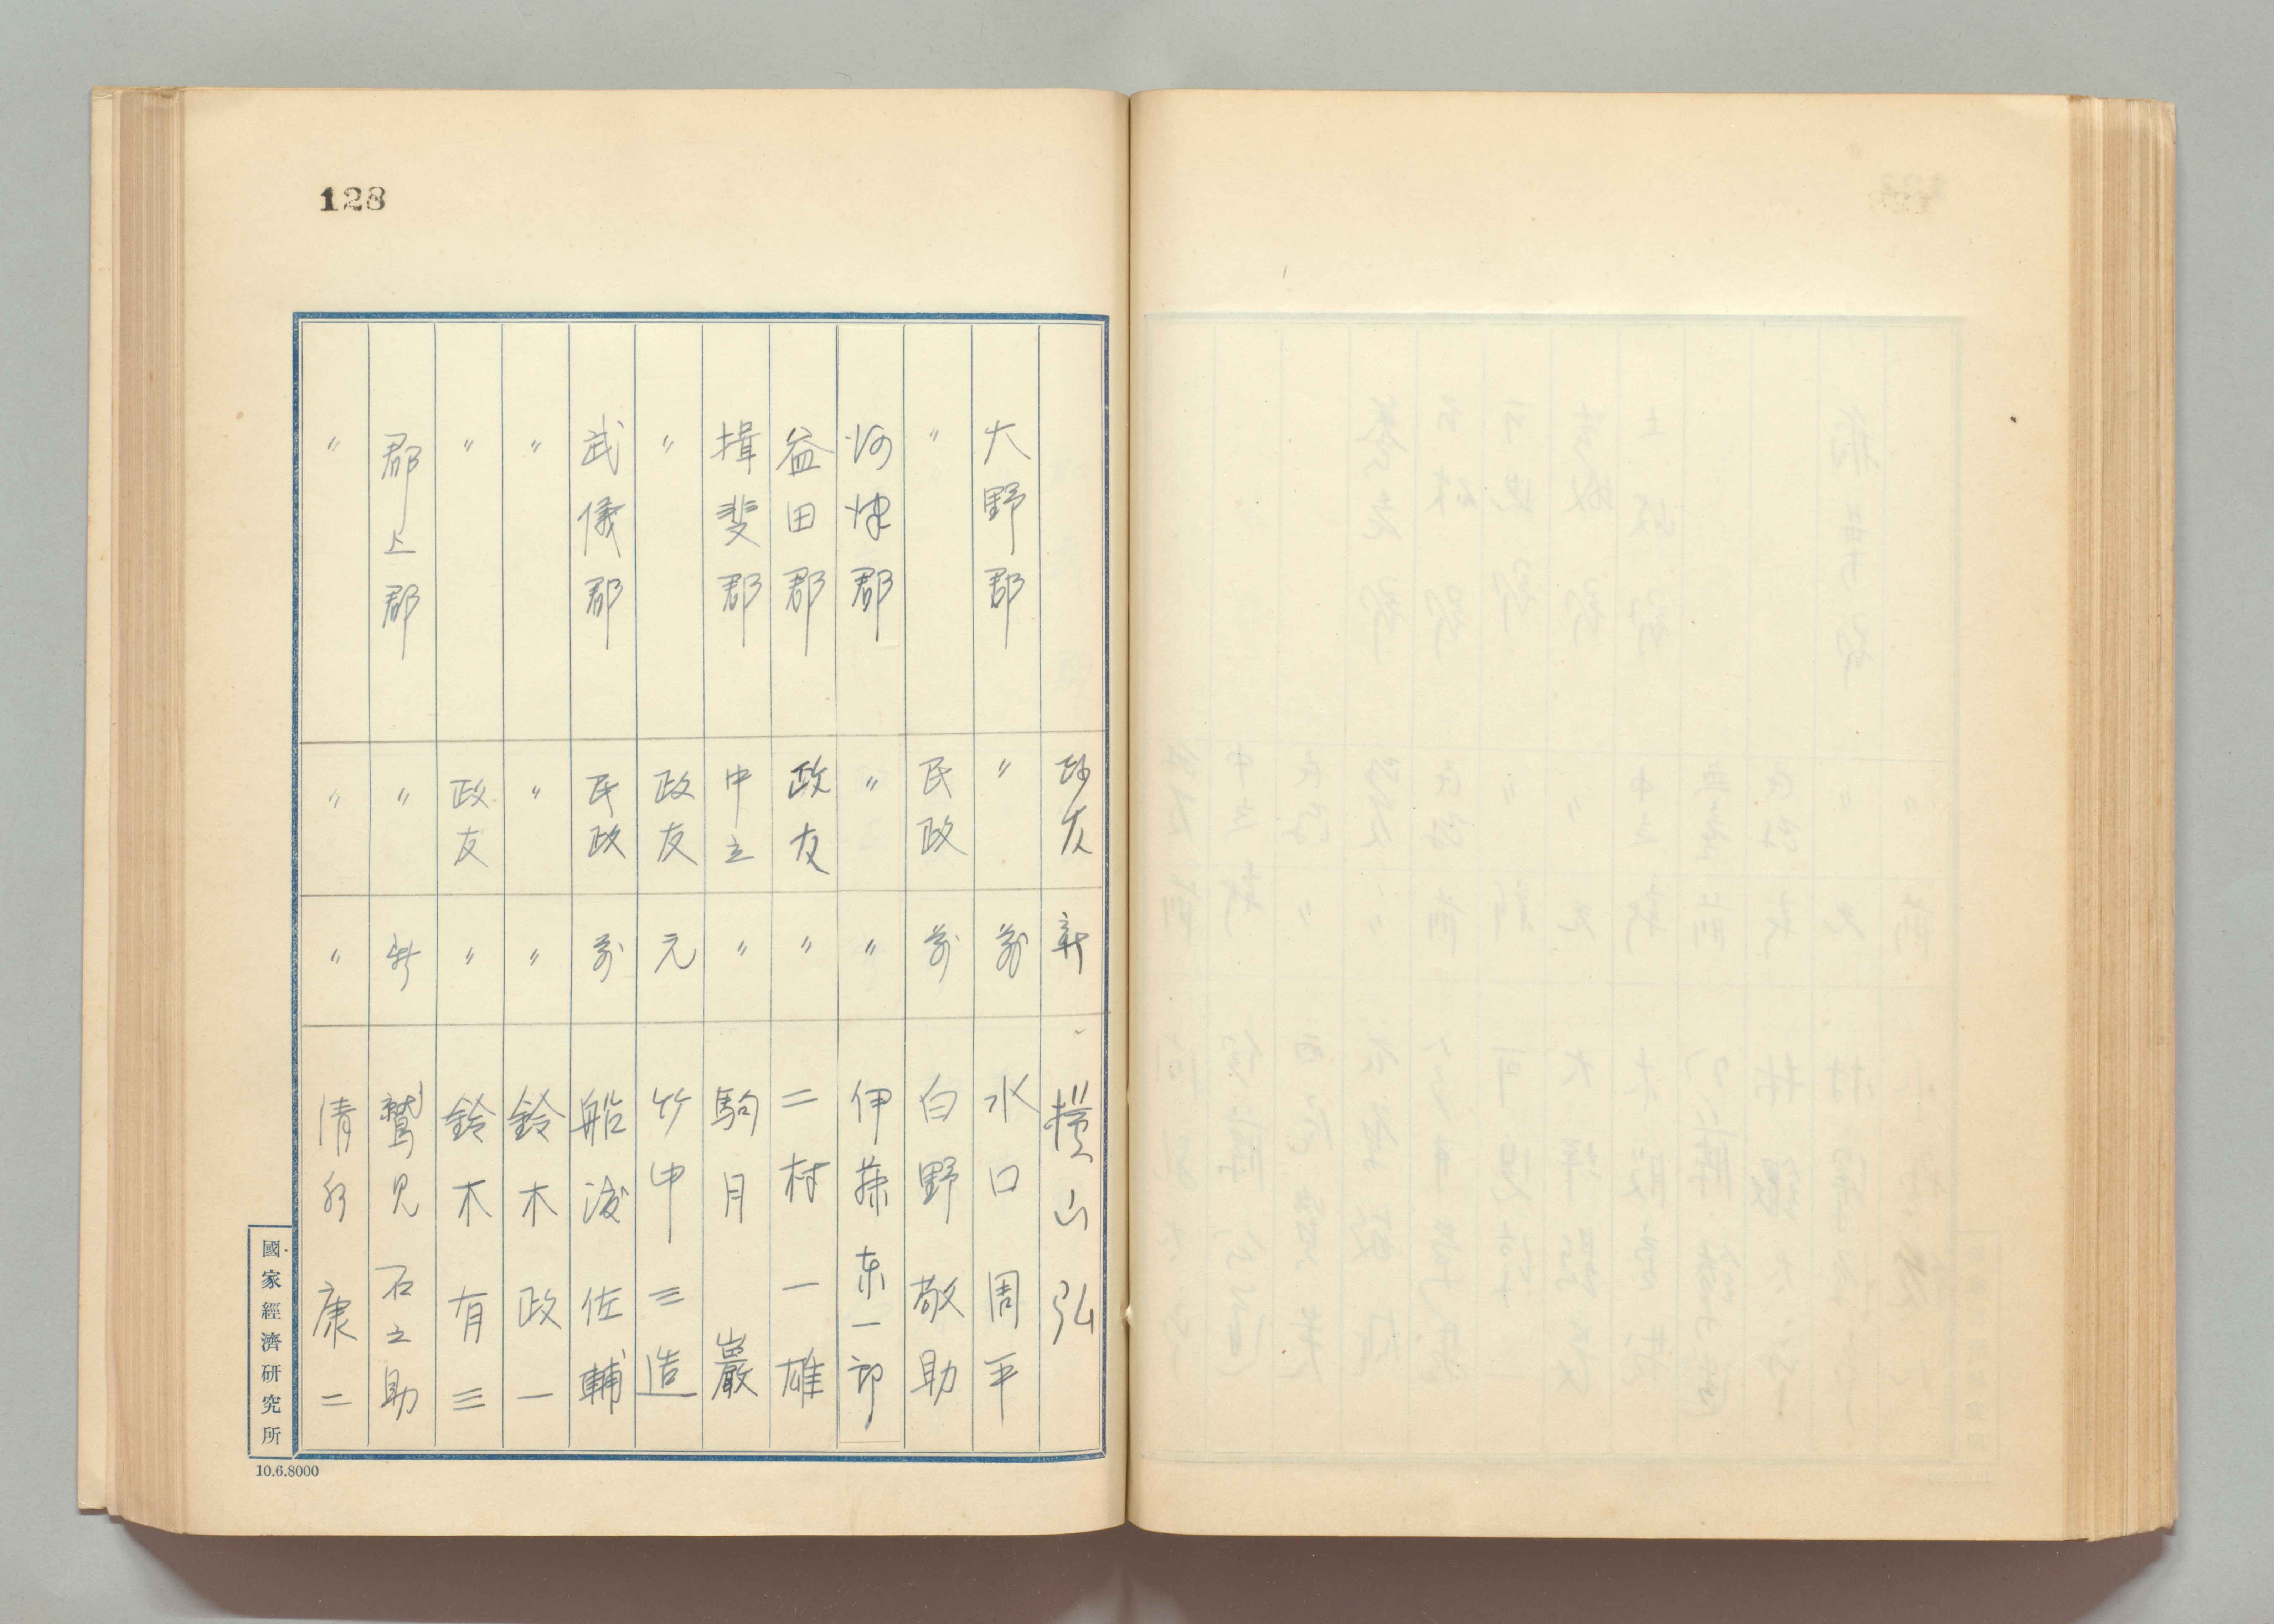 128
政友 新 横山弘
大野郡 〃 前 水口周平
〃 民政 前 白野敬助
河津郡 〃 〃 伊藤東一郎
益田郡 政友 〃 二村一雄
揖斐郡 中立 〃 駒月巖
〃 政友 元 竹中三造
武儀郡 民政 前 船渡佐輔
〃 〃 〃 鈴木政一
〃 政友 〃 鈴木有三
郡上郡 〃 新 鷲見石之助
〃 〃 〃 清水康二
國家經濟研究所
10.6.8000